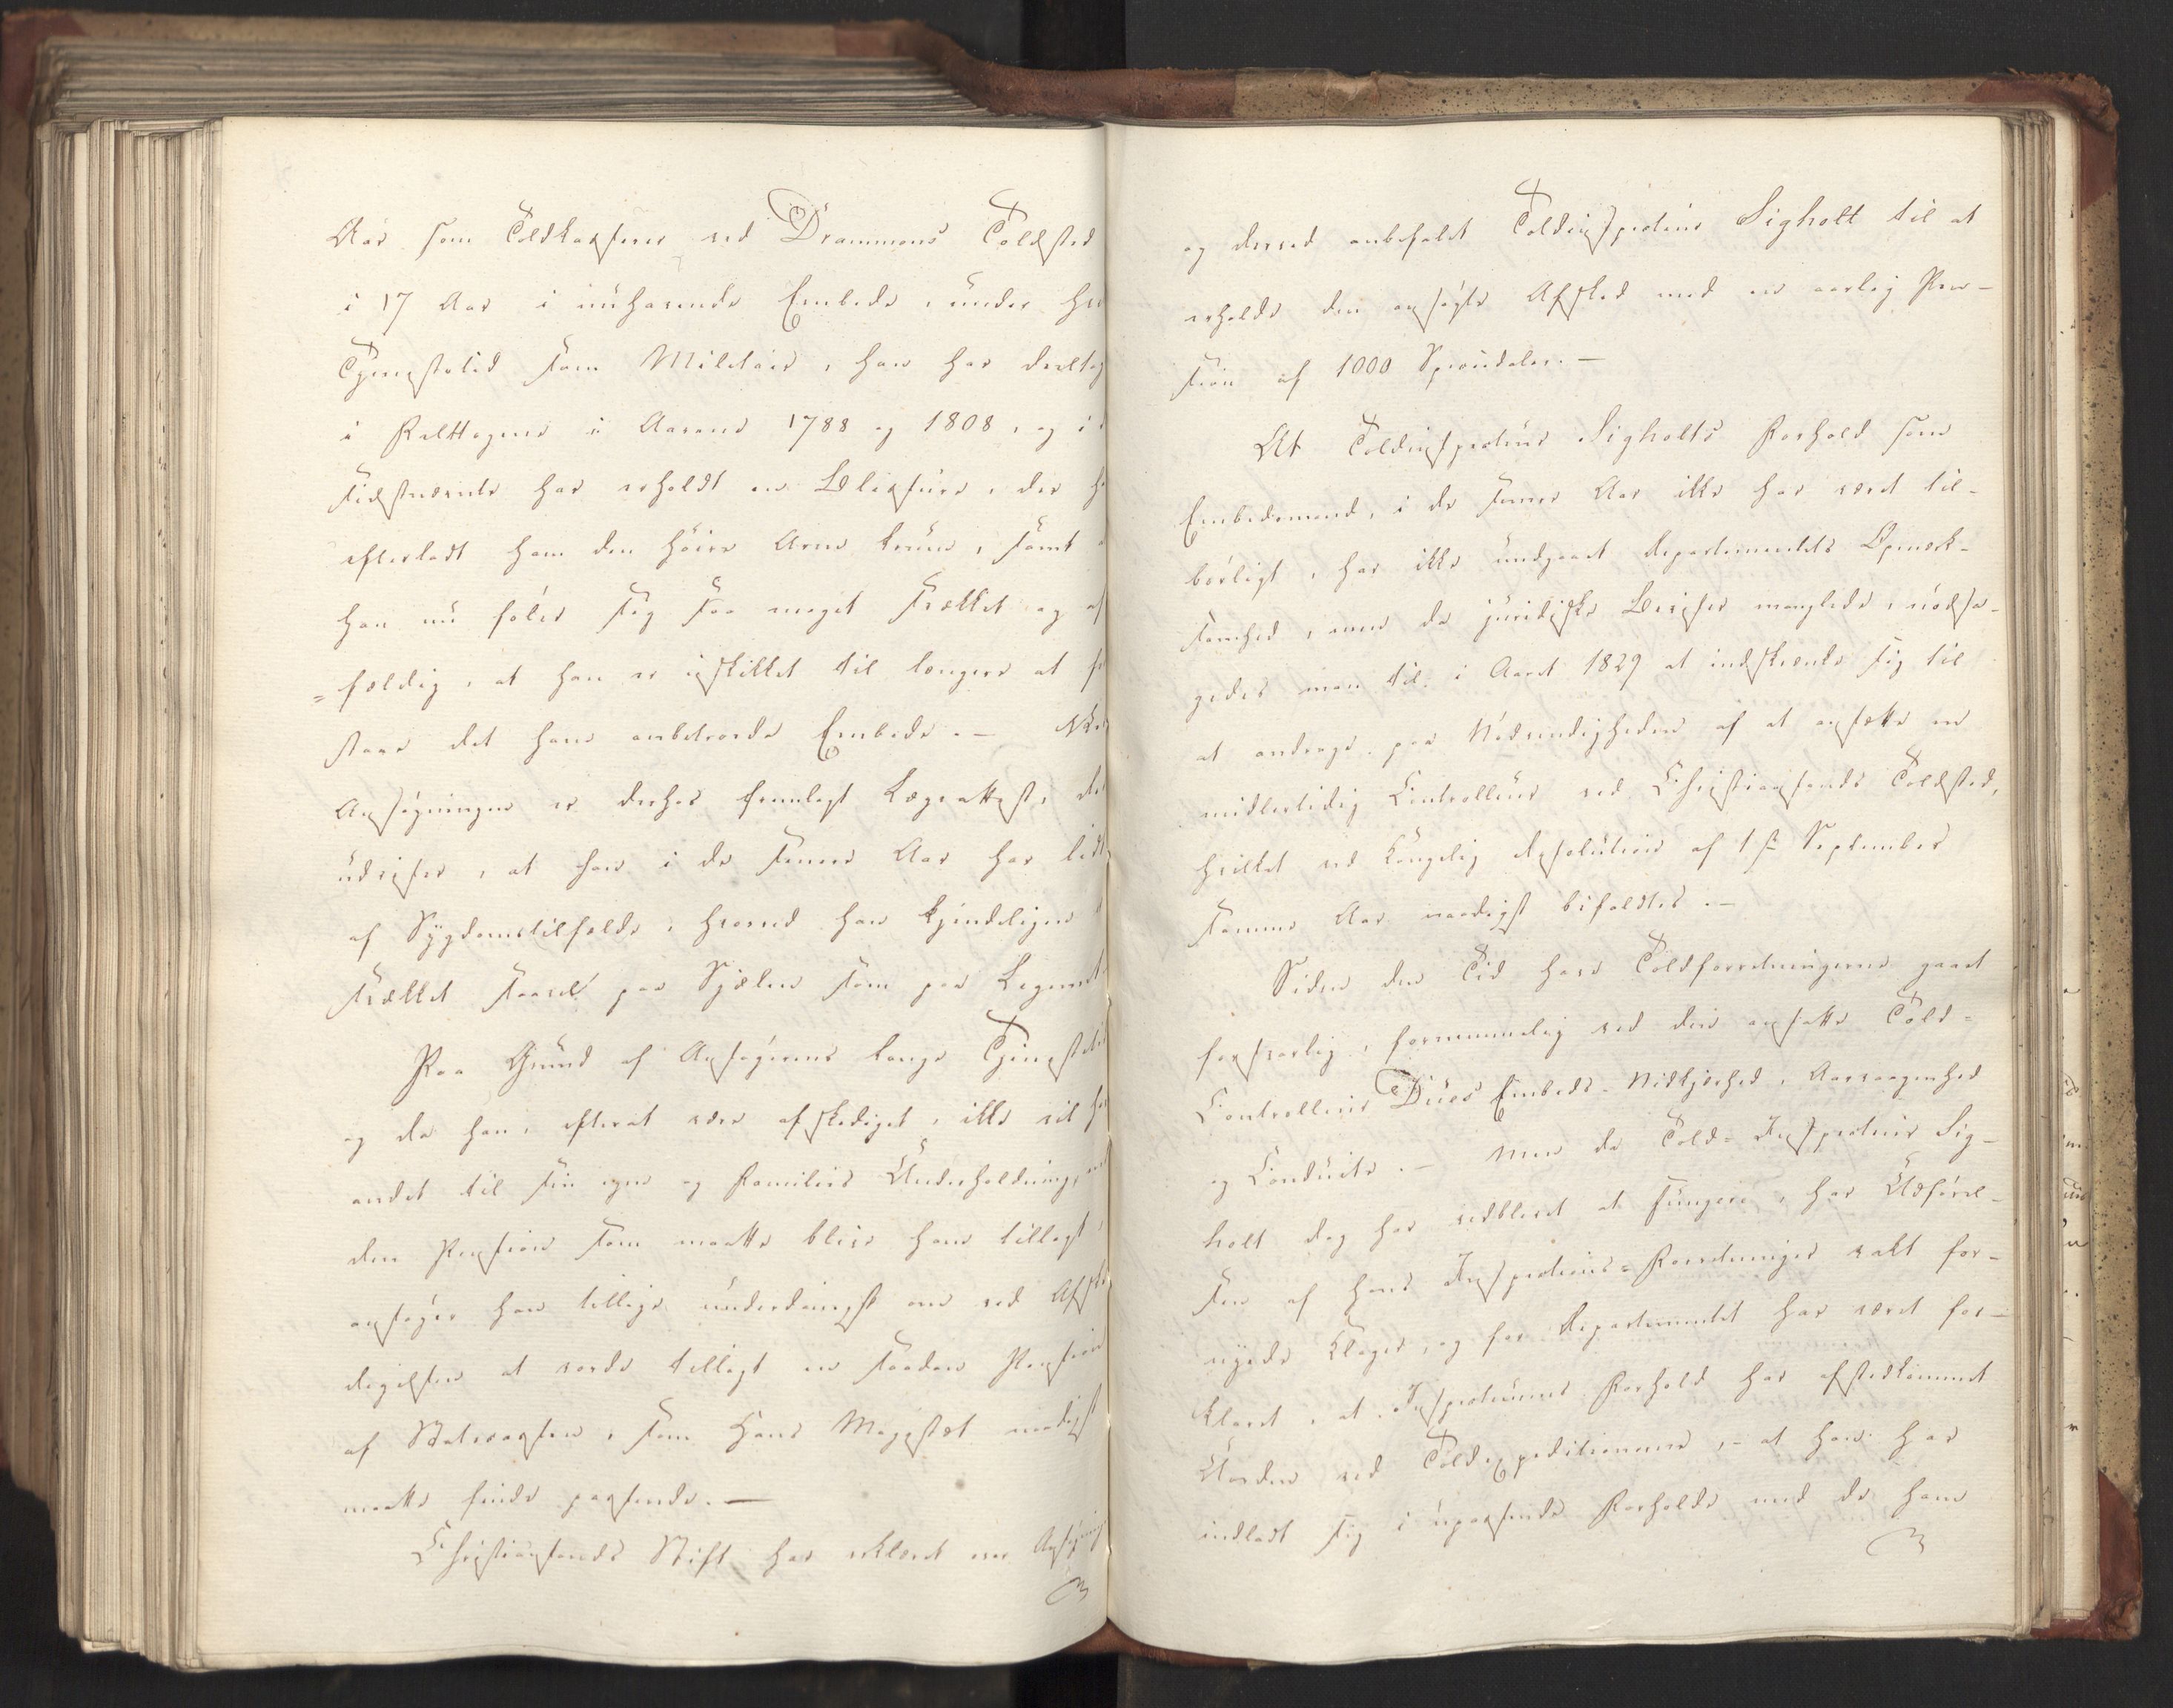 Aar som Toldkasserer ved Drammens Toldsted
i 17 Aar i nuhavende Embede, under
Tjenestetid som Militair, han har deeltag
i Felttogene i Aarene 1788 og 1808, og i
sidstnævnte har erholdt en Blessure, der
efterladt ham den høire Arm krum, samt
han nu føler sig saa meget svækket og af
=fældig, at han er uskikket til længere at
staae det ham anbetroede Embede. —
Ansøgningen er derhos fremlagt Lægeattest, der
udviser, at han i de senere Aar har lidt
af Sygdomstilfælde, hvorved han kjendeligen
svækket saavel paa Sjælen som paa Legemet
Paa Grund af Ansøgerens lange Tjeneste
og da han, efterat være afskediget, ikke vil
andet til sin egen og Families Underholdning,
den Pension som maatte blive ham tillagt,
ansøger han tillige underdanigst om ved
digelsen at vorde tillagt en saadan Pension
af Statscassen, som Hans Majestæt naadigst
maatte finde passende. —
Christianssands Stift har erklæret over
og derved anbefalet Toldinspecteur Sigholt til at
erholde den ansøgte Afsked med en aarlig Pen-
sion af 1000 Speciedaler. —
At Toldinspecteur Sigholts Forhold som
Embedsmand, i de senere Aar ikke har været til-
børligt, har ikke undgaaet Departementets Opmærk-
somhed, men da juridiske Beviser manglede, nødsa-
gedes man til i Aaret 1829 at indskrænke sig til
at andrage paa Nødvendigheden af at ansætte en
midlertidig Controlleur ved Christianssands Toldsted,
hvilket ved Kongelig Resolution af 1ste September
samme Aar naadigst bifaldtes. —
Siden den Tid have Toldforretningerne gaaet
forsvarlig, fornemmelig ved den ansatte Told-
Controlleur Dües Embeds-Nidkjærhed, Aarvaagenhed
og Conduite. — Men da Told-Inspecteur Sig-
holt dog har vedblevet at fungere, har Udførel-
sen af hans Inspections-Forretninger vakt for-
nyede Klager, og for Departementet har været for-
klaret, at Inspecteurens Forhold har afstedkommet
Uorden ved Toldexpeditionerne, — at han har
indladt sig i upassende Forholde med de ham